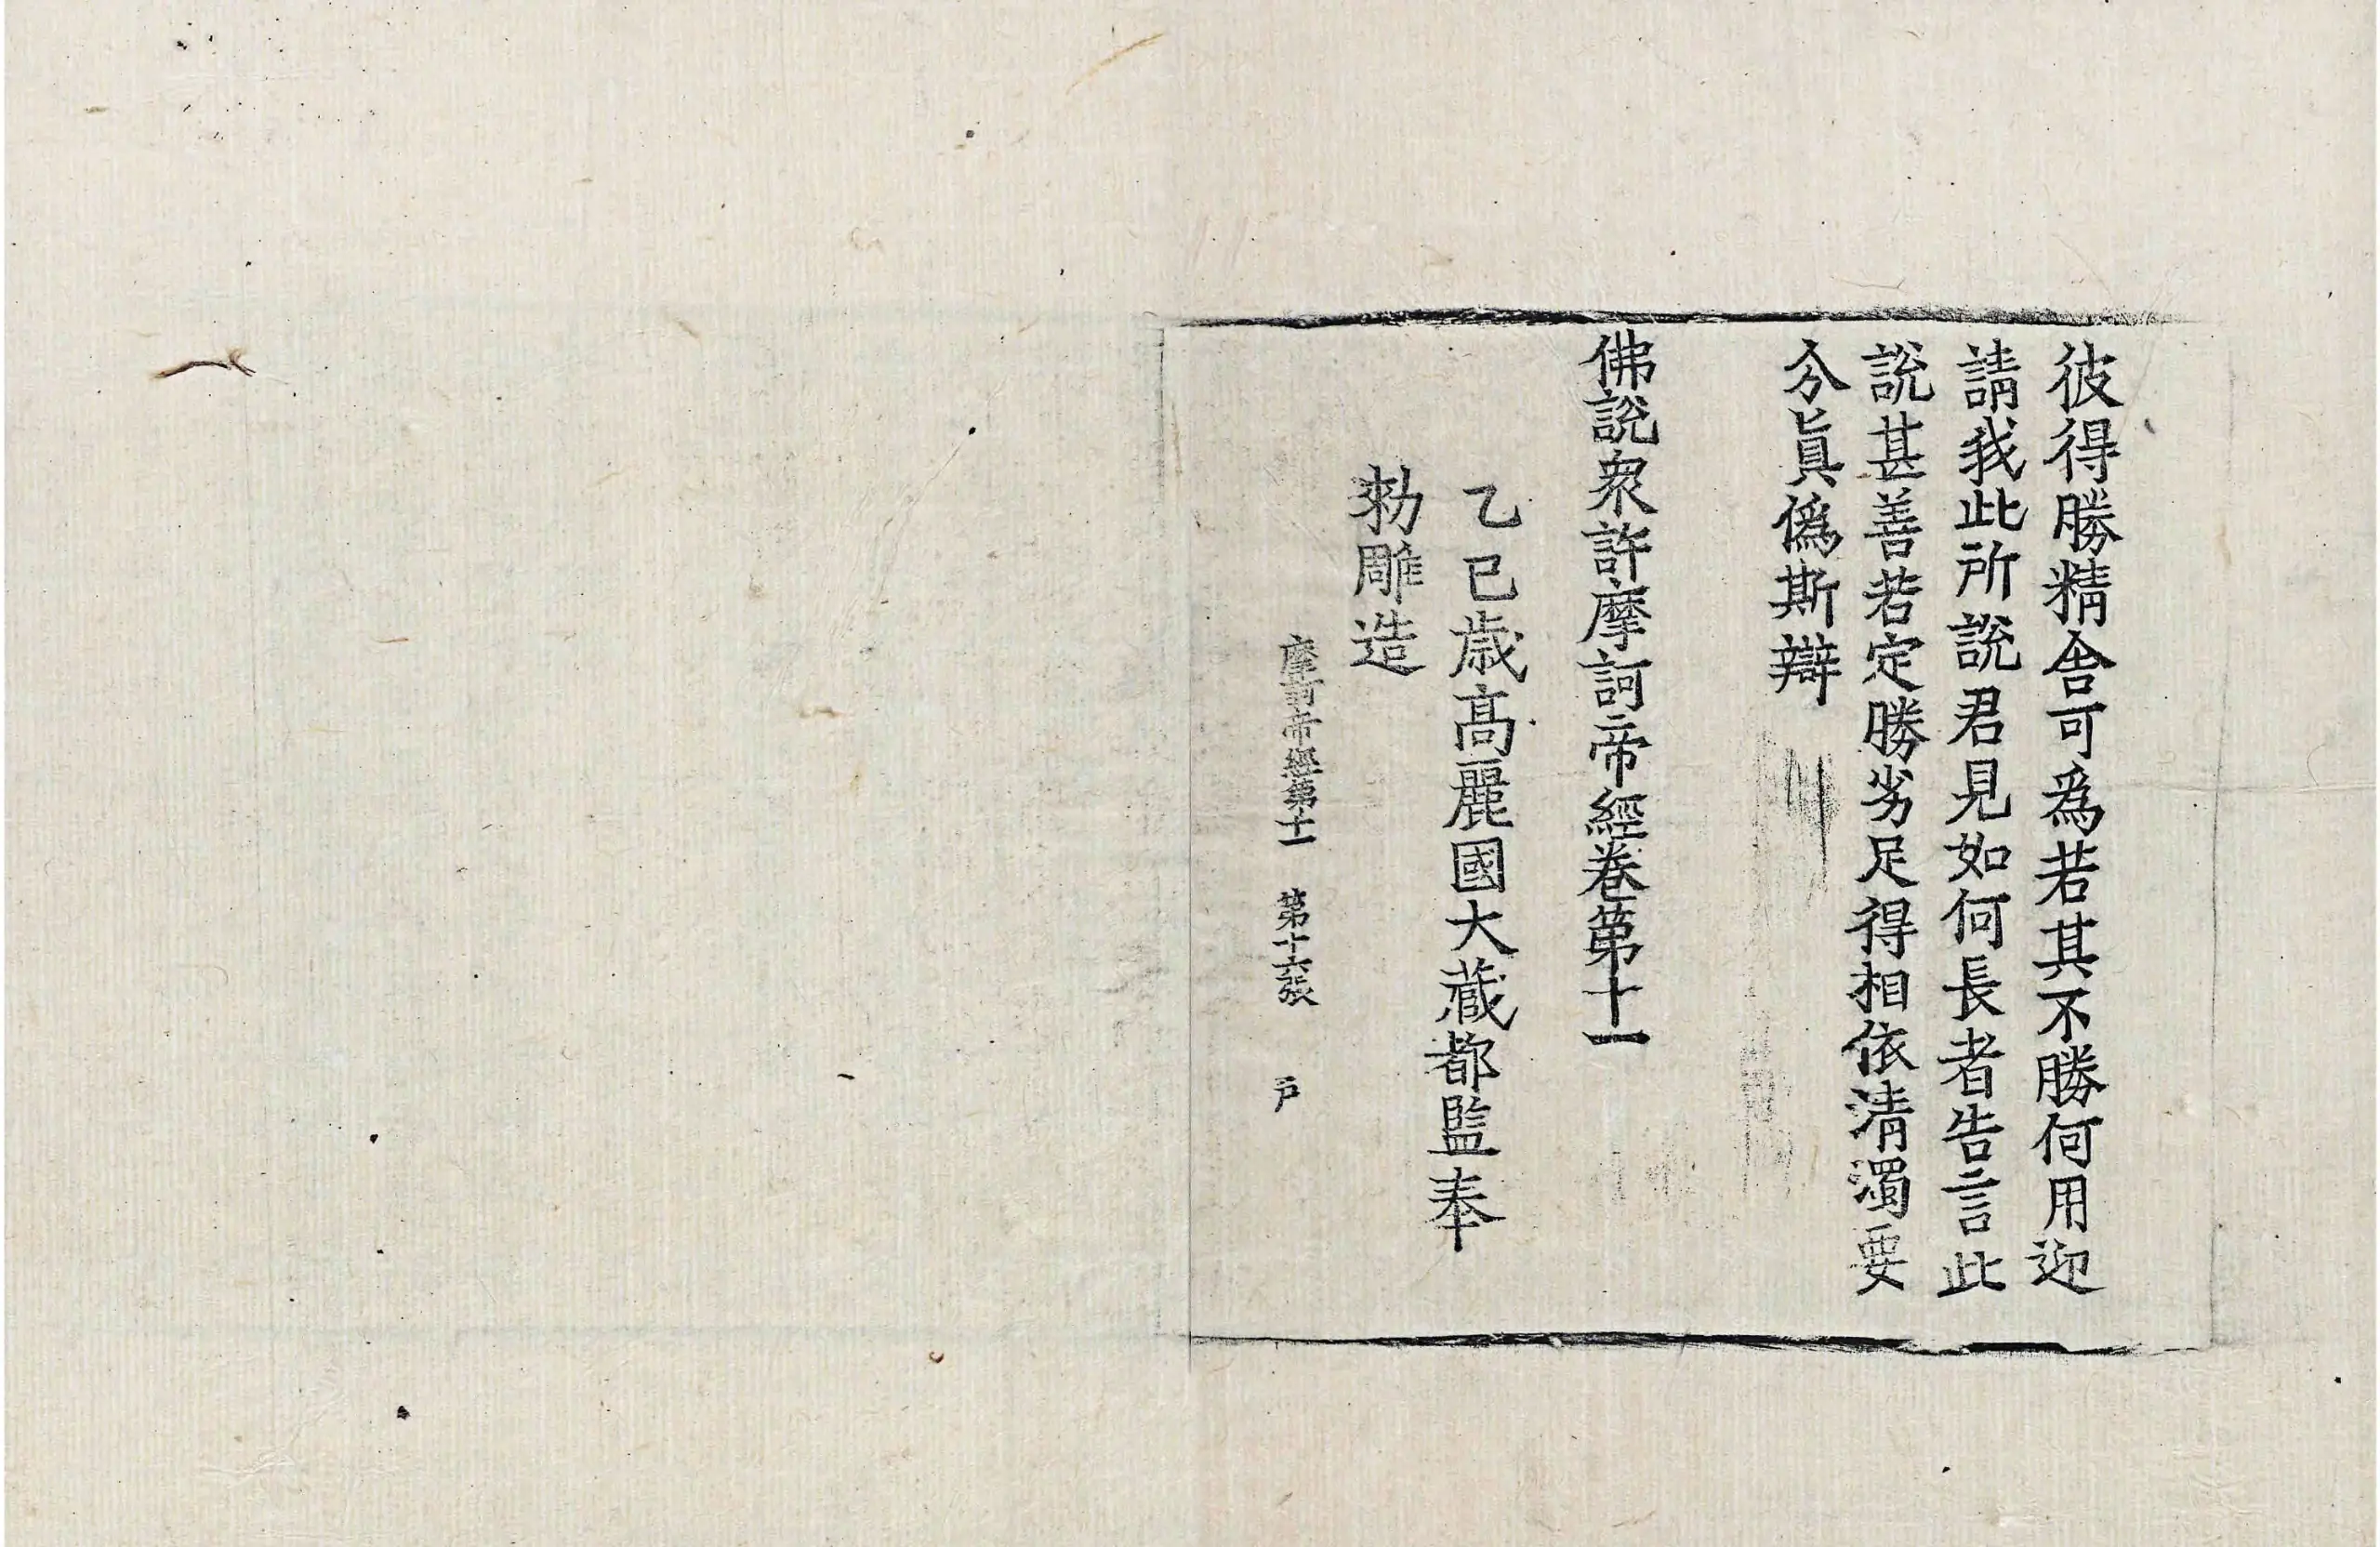 彼得勝精舎可爲若其不勝何用迎
請我此所說君見如何長者告言此
說甚善若定勝劣足得相依清濁要
分眞僞斯辯
佛說衆許摩訶帝經卷第十一
乙巳歳高麗國大藏都監奉
勅雕造
摩訶帝經第十一 第十六張 戸